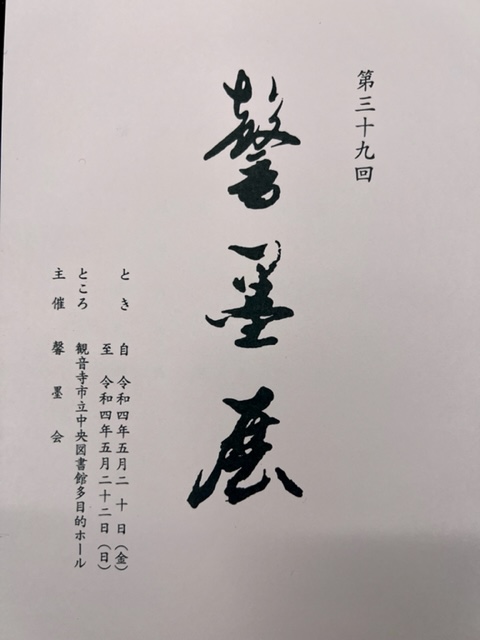 第三十九回
馨墨展
とき 自 令和四年五月二十日（金）
至 令和四年五月二十二日（日）
ところ 観音寺市立中央図書館多目的ホール
主催 馨墨会